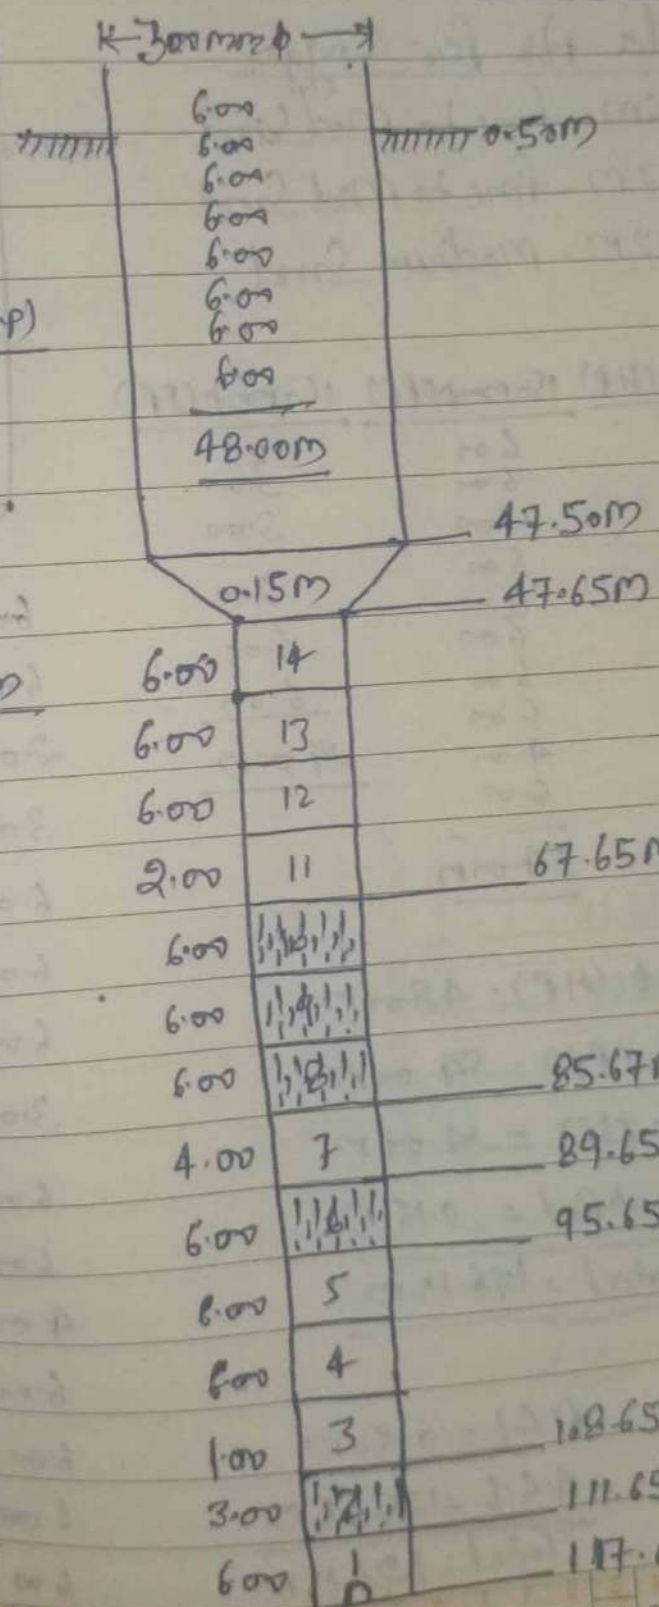 300mm φ
6.00
6.00 0.50m
6.00
6.00
6.00
6.00
6.00
6.00
48.00m
47.50m
0.15m 47.65m
6.00 14
6.00 13
6.00 12
2.00 11 67.65m
6.00 10
6.00 9
6.00 8 85.67
4.00 7 89.65
6.00 6 95.65
6.00 5
6.00 4
1.00 3 108.65
3.00 2 111.65
6.00 1 117.